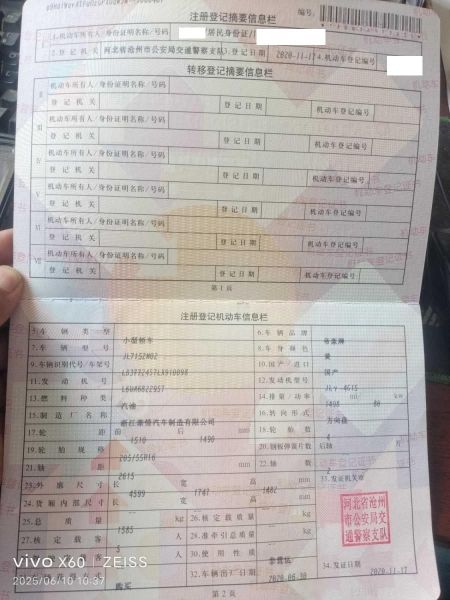 注册登记摘要信息栏
编号:
I
1.机动车所有人/身份证明名称/号码
/居民身份证/
2.登记机关 河北省沧州市公安局交通警察支队 3.登记日期 2020-11-17 4.机动车登记编号
转移登记摘要信息栏
II 机动车所有人/身份证明名称/号码
登记机关 登记日期 机动车登记编号
III 机动车所有人/身份证明名称/号码
登记机关 登记日期 机动车登记编号
IV 机动车所有人/身份证明名称/号码
登记机关 登记日期 机动车登记编号
V 机动车所有人/身份证明名称/号码
登记机关 登记日期 机动车登记编号
VI 机动车所有人/身份证明名称/号码
登记机关 登记日期 机动车登记编号
VII 机动车所有人/身份证明名称/号码
登记机关 登记日期 机动车登记编号
第1页
注册登记机动车信息栏
5.车辆类型 小型轿车 6.车辆品牌 帝豪牌
7.车辆型号 JL7152N02 8.车身颜色 黄
9.车辆识别代号/车架号 10.国产/进口 国产
11.发动机号 12.发动机型号
13.燃料种类 汽油 14.排量/功率 1498 ml/ kw
15.制造厂名称 浙江豪情汽车制造有限公司 16.转向形式 方向盘
17.轮距 前 1510 后 1490 mm 18.轮胎数 4
19.轮胎规格 205/55R16 20.钢板弹簧片数 后轴 片
21.轴距 2615 mm 22.轴数 2
23.外廓尺寸 长 4599 宽 1741 高 1482 mm 33.发证机关章
24.货厢内部尺寸 长 宽 高 mm
25.总质量 1585 kg 26.核定载质量 kg
27.核定载客 5 人 28.准牵引总质量 kg
30.使用性质 非营运
购买 32.车辆出厂日期 2020-06-30 34.发证日期 2020-11-17
河北省沧州市公安局交通警察支队
第2页
vivo X60 | ZEISS
2025/06/10 10:37